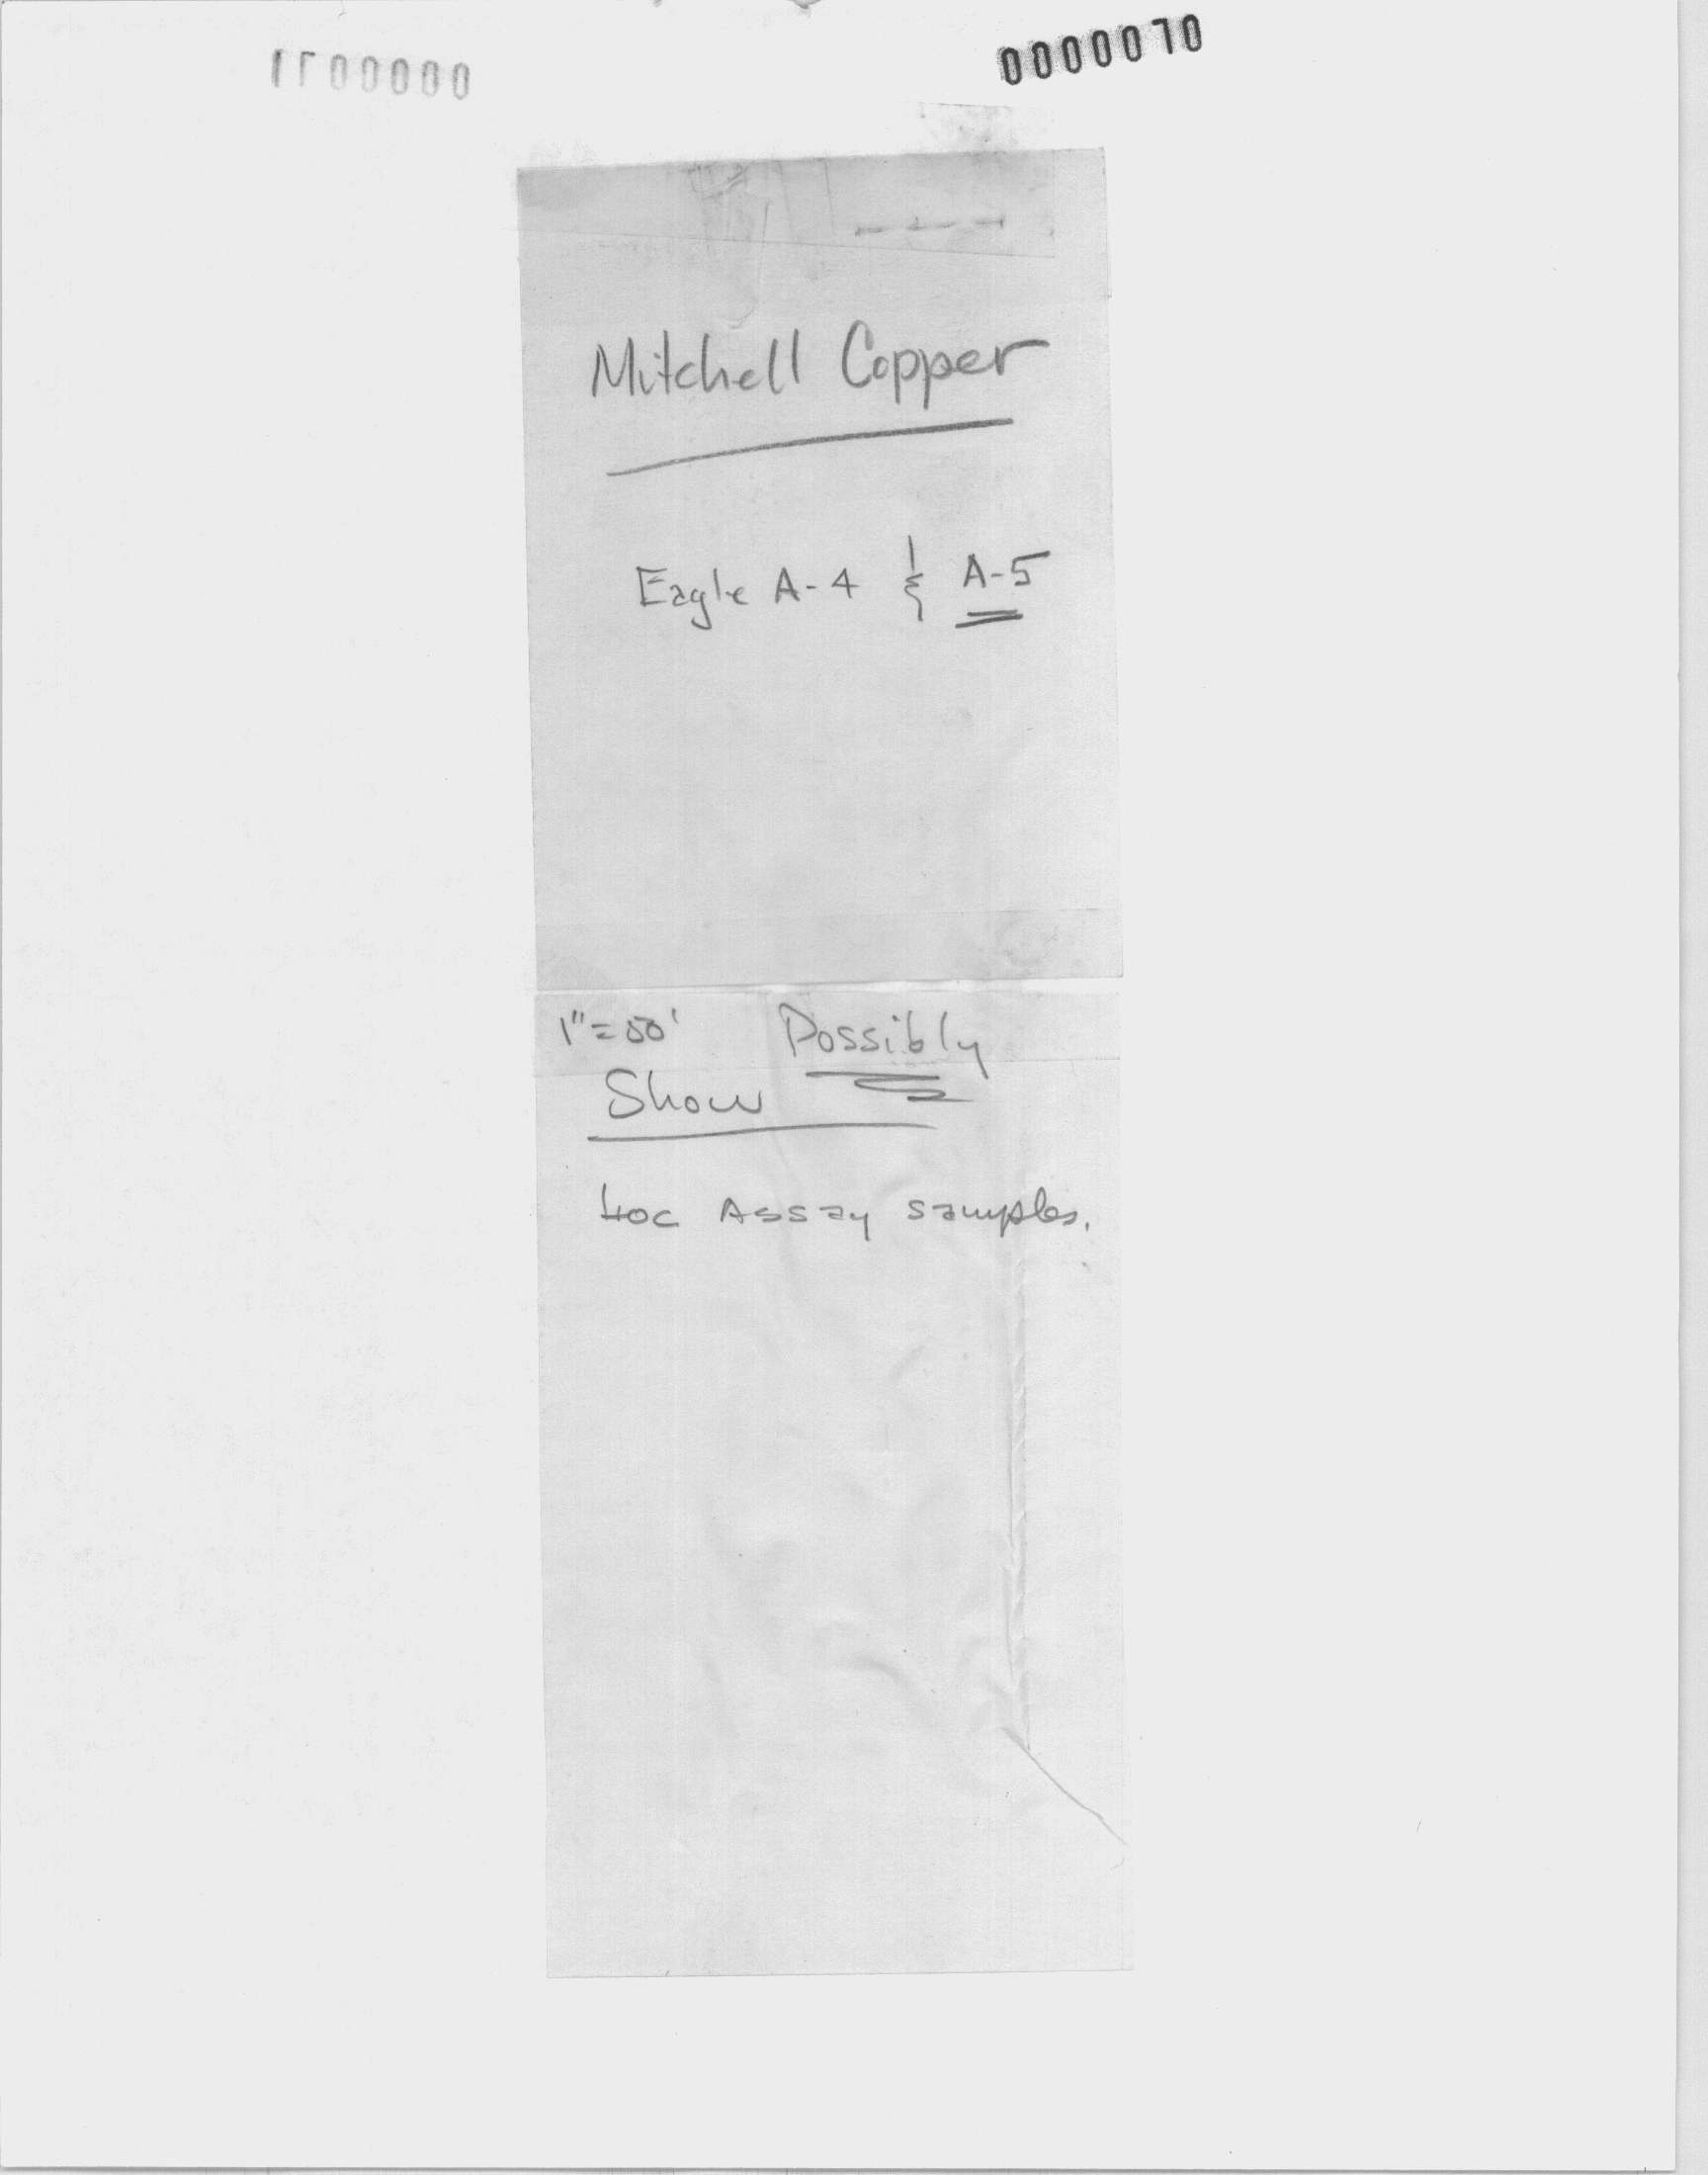 0000070
Mitchell Copper
Eagle A-4 & A-5
1"=50' Possibly
Show
Loc Assay samples.